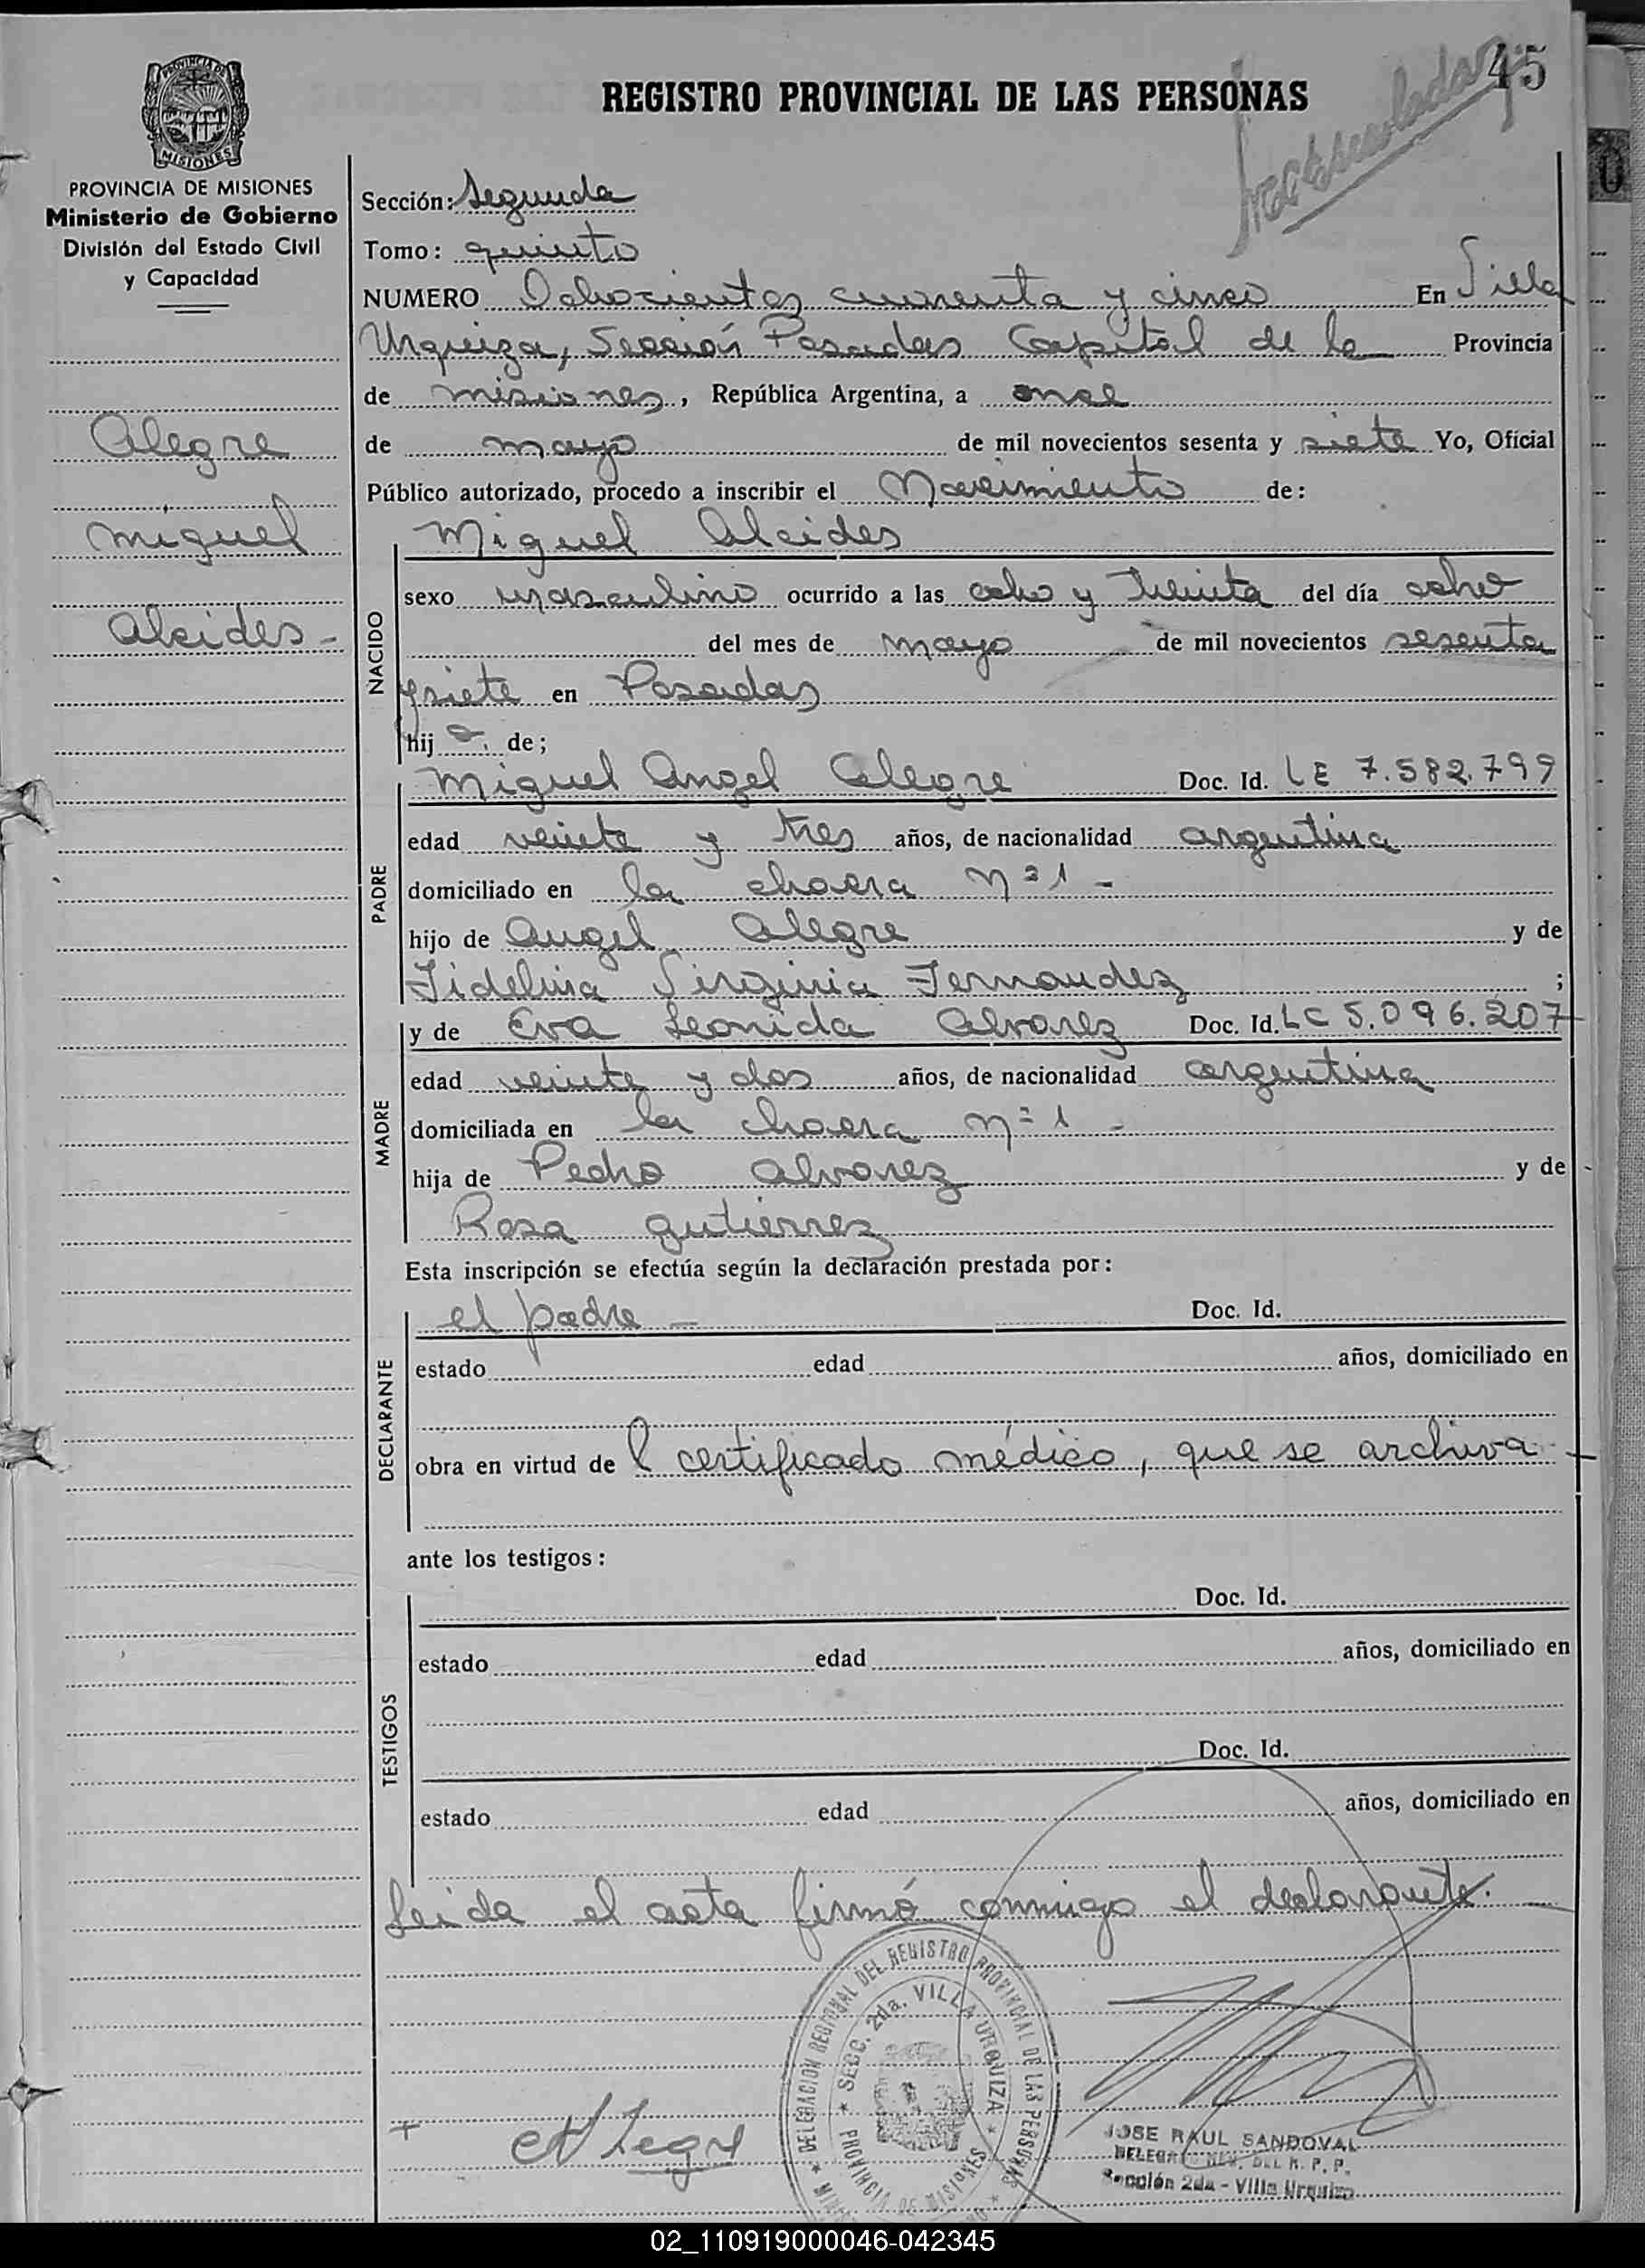 45
REGISTRO PROVINCIAL DE LAS PERSONAS
PROVINCIA DE MISIONES
MISIONES
PROVINCIA DE MISIONES
Ministerio de Gobierno
División del Estado Civil
y Capacidad
Alegre
Miguel
Alcides -
Sección: Segunda
Tomo: quinto
NUMERO Ochocientos cuarenta y cinco En Villa
Urquiza, Sección Posadas Capital de la Provincia
de misiones, República Argentina, a once
de mayo de mil novecientos sesenta y siete Yo, Oficial
Público autorizado, procedo a inscribir el Nacimiento de:
NACIDO
Miguel Alcides
sexo masculino ocurrido a las ocho y treinta del día ocho
del mes de mayo de mil novecientos sesenta
y siete en Posadas
hij o. de;
PADRE
Miguel Angel Alegre Doc. Id. LE 7.582.799
edad veinte y tres años, de nacionalidad argentina
domiciliado en la chacra nº 1 -
hijo de Angel Alegre y de
Fidelina Virginia Fernandez ;
MADRE
y de Eva Leonida Alvarez Doc. Id. LC 5.096.207
edad veinte y dos años, de nacionalidad argentina
domiciliada en la chacra nº 1 -
hija de Pedro Alvarez y de
Rosa Gutierrez
Esta inscripción se efectúa según la declaración prestada por:
DECLARANTE
el padre - Doc. Id.
estado edad años, domiciliado en
obra en virtud de l certificado médico, que se archiva -
ante los testigos:
TESTIGOS
Doc. Id.
estado edad años, domiciliado en
Doc. Id.
estado edad años, domiciliado en
Leida el acta firmó conmigo el declarante.
DELEGACION REGIONAL DEL REGISTRO PROVINCIAL DE LAS PERSONAS
SECC. 2da. VILLA URQUIZA
PROVINCIA DE MISIONES
Alegre
JOSE RAUL SANDOVAL
DEL R. P. P.
Sección 2da - Villa Urquiza
02_110919000046-042345